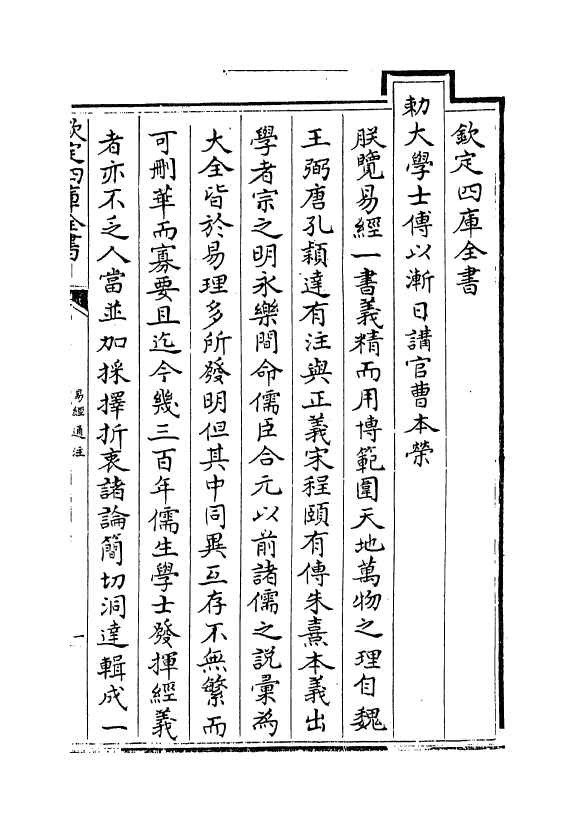 欽定四庫全書
勅大學士傅以漸日講官曹本榮
朕覽易經一書義精而用博範圍天地萬物之理自魏
王弼唐孔穎達有注與正義宋程頤有傳朱熹本義出
學者宗之明永樂間命儒臣合元以前諸儒之說彙為
大全皆於易理多所發明但其中同異互存不無繁而
可刪華而寡要且迄今幾三百年儒生學士發揮經義
者亦不乏人當並加採擇折衷諸論簡切洞達輯成一
欽定四庫全書
易經通注
一